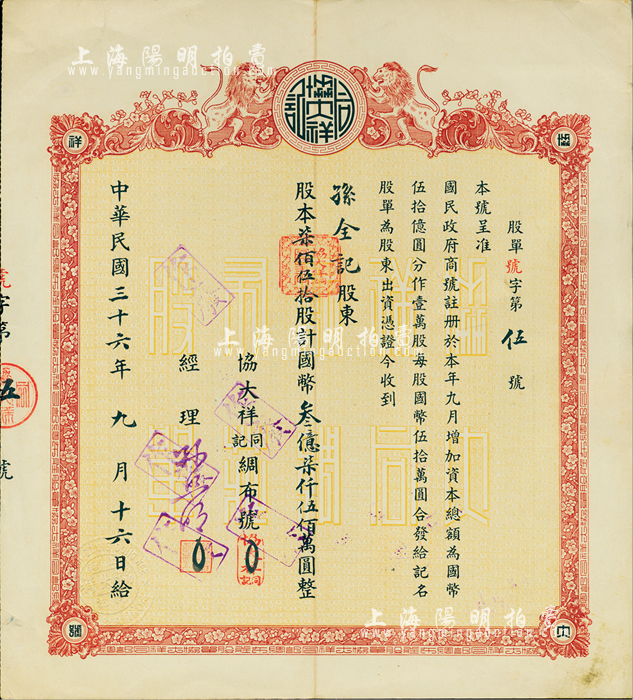 上海陽明拍賣
www.yangmingauction.com
祥
協
股單號字第伍號
本號呈准
國民政府商號註册於本年九月增加資本總額為國幣
伍拾億圓分作壹萬股每股國幣伍拾萬圓合發給記名
股單為股東出資憑證今收到
孫全記股東
股本柒佰伍拾股計國幣叁億柒仟伍佰萬圓整
協大祥同記綢布號
經理
中華民國三十六年九月十六日給
號字第伍號
上海陽明拍賣
www.yangmingauction.com
號
大
上海陽明拍賣
www.yangmingauction.com